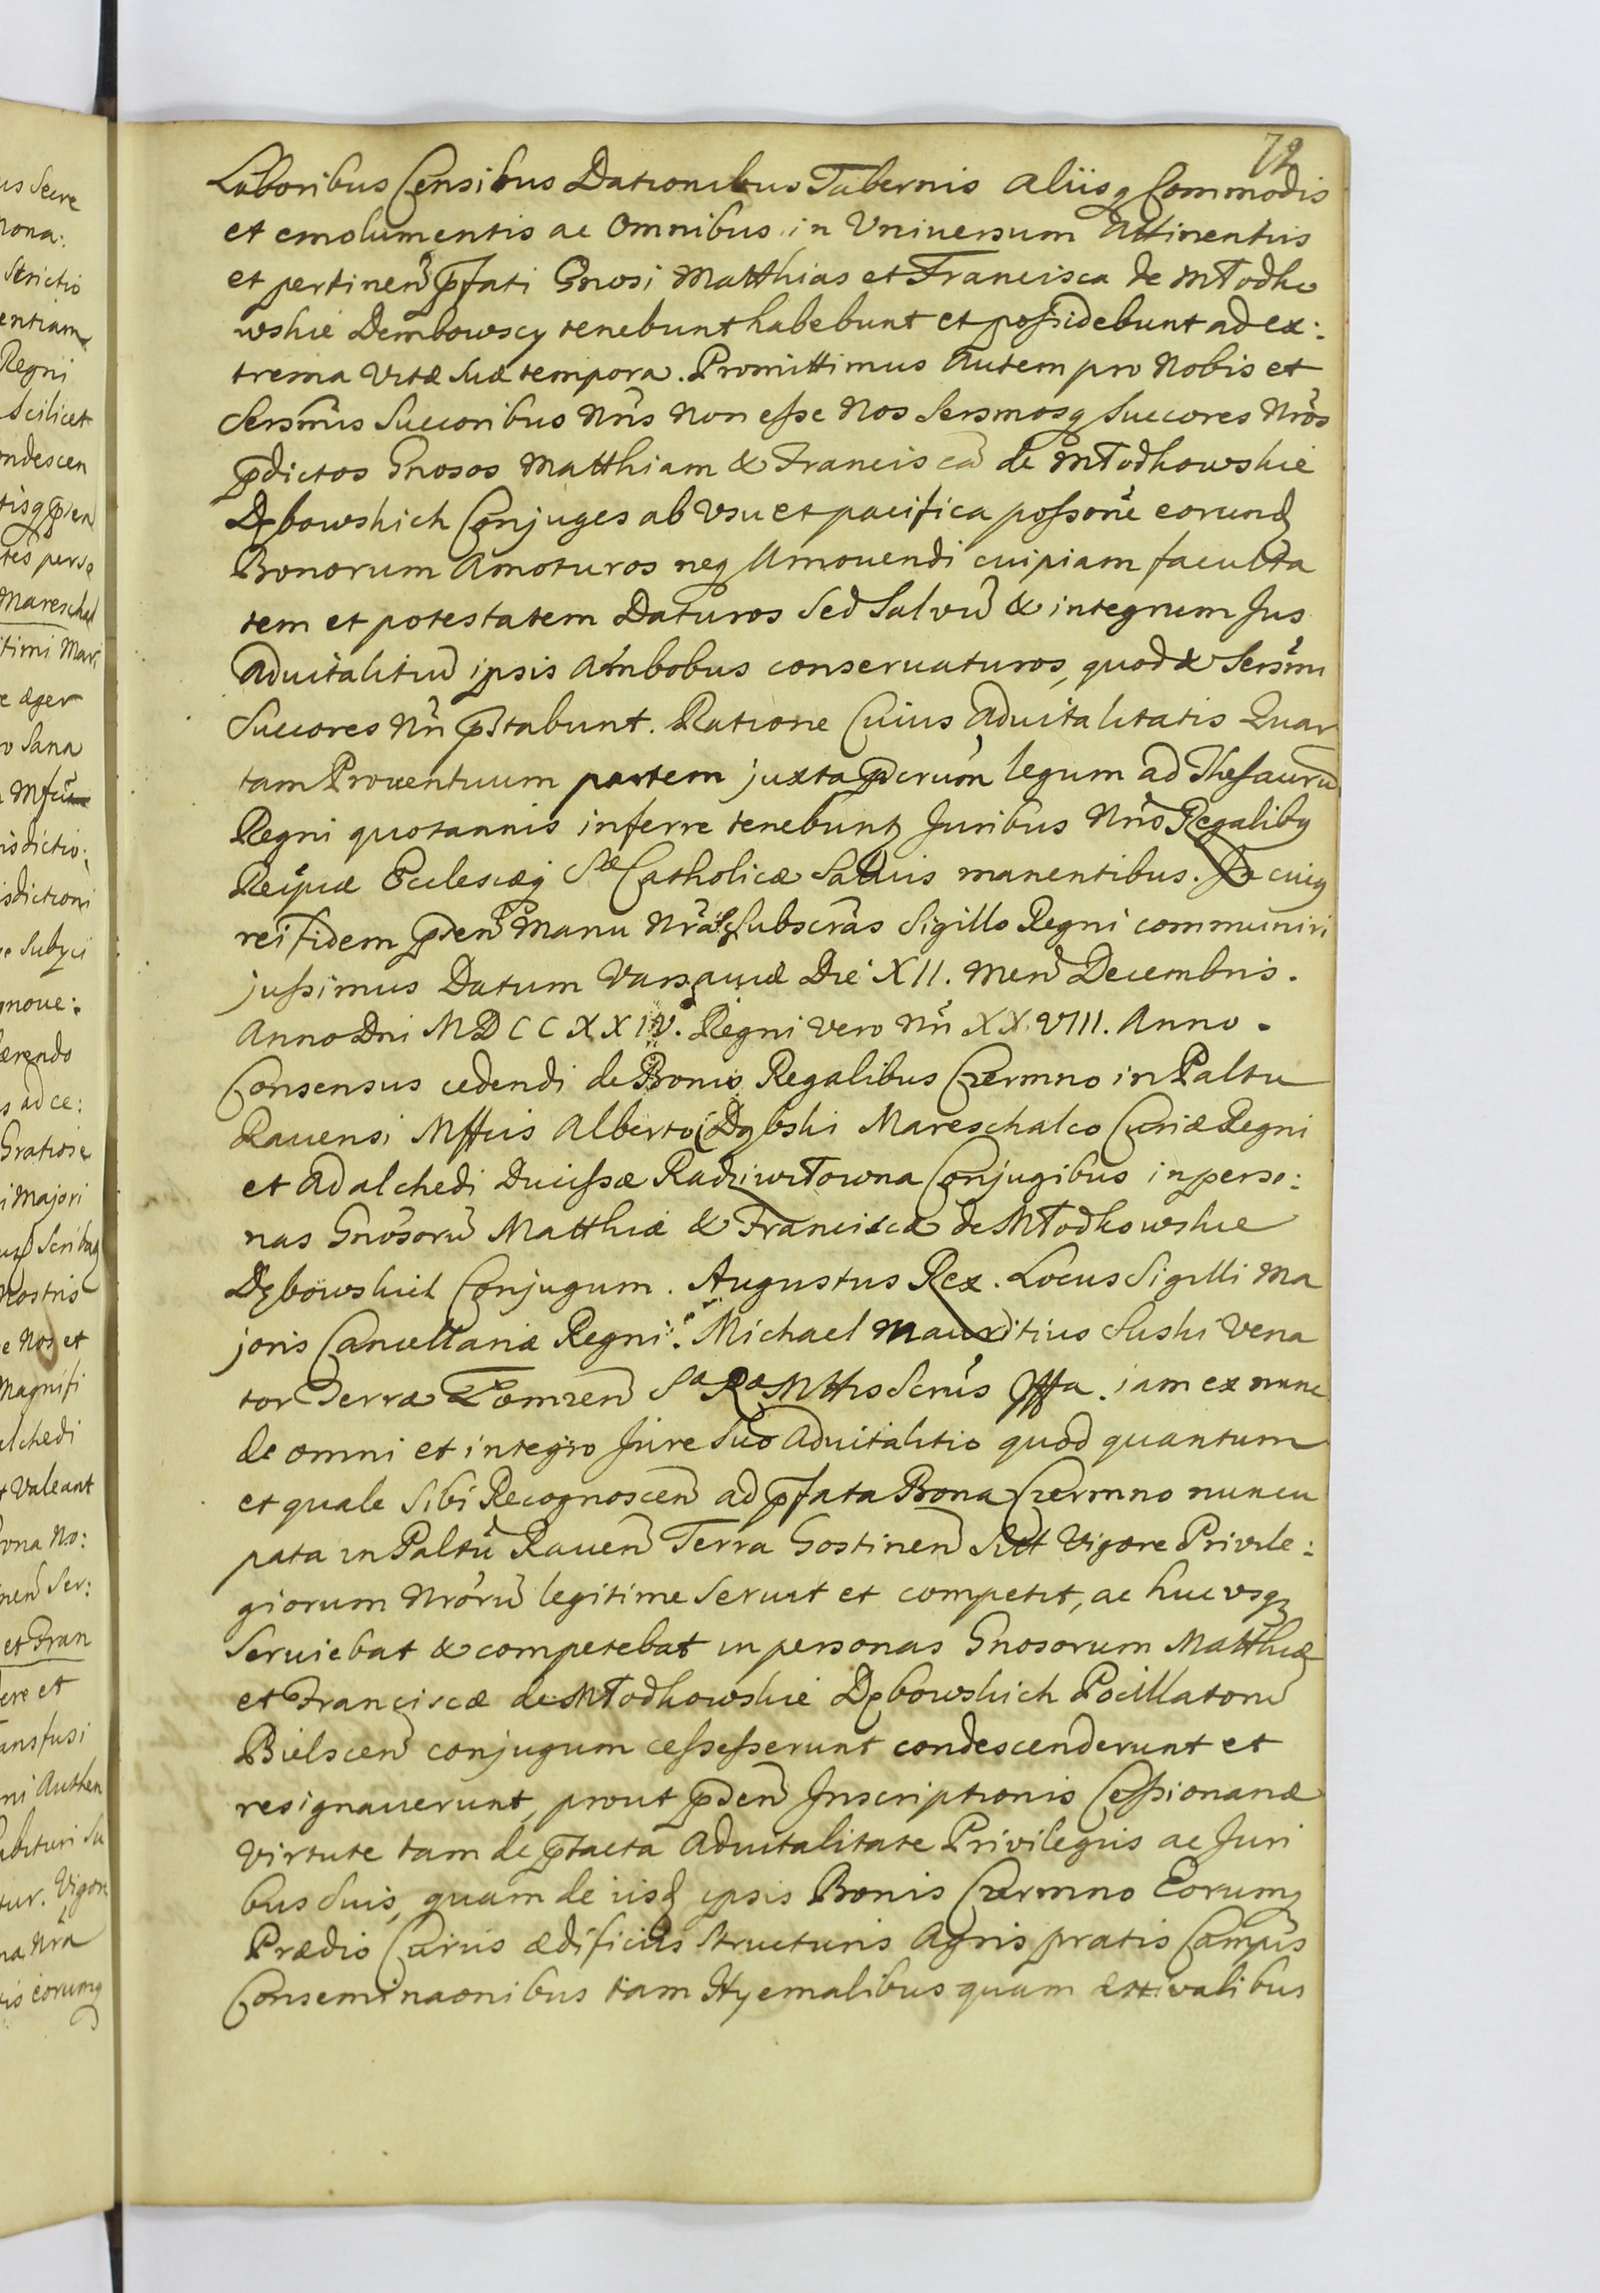 72
Laboribus Censibus Dationibus Tabernis aliisq Commodis
et emolumentis ac Omnibus in Vniuersum Attinentiis
et pertinen p̄fati Gnosi Matthias et Francisca de Młodko
wskie Dembowscy tenebunt habebunt et possidebunt ad ex:
trema vitæ suæ tempora. Promittimus Autem pro Nobis et
Sersmis Succoribus Nris Non esse Nos Sersmosq Succores Nros
p̄dictos Gnosos Matthiam & Franciscā de Młodkowskie
Dębowskich Conjuges ab Vsu et pacifica possone eorund
Bonorum Amoturos neq Amouendi cuipiam faculta
tem et potestatem Daturos Sed Salvū & integrum Jus
Aduitalitiū ipsis Ambobus conseruaturos, quod & Sersmi
Succores Nri p̄stabunt. Ratione Cuius Aduitalitatis Quar
tam Prouentuum partem juxta p̄scrum legum ad Thesaurū
Regni quotannis inferre tenebunt Juribus Nris Regalibq
Reipcæ Ecclesiæq Sæ Catholicæ Saluis manentibus. In cuiq
rei fidem p̄sen Manu Nra Subscras Sigillo Regni communiri
jussimus Datum Varsauiæ Die XII. Men Decembris.
Anno Dni MDCCXXIV. Regni vero Nri XXVIII. Anno.
Consensus cedendi de Bonis Regalibus Czermno in Paltu
Rauensi Mffcis Alberto Dębski Mareschalco Curiæ Regni
et Adalchedi Ducissæ Radziwiłowna Conjugibus in perso:
nas Gnosorū Matthiæ & Franciscæ de Młodkowskie
Dębowskich Conjugum. Augustus Rex. Locus Sigilli Ma
joris Cancellariæ Regni. Michael Mauritius Suski Vena
tor Terræ Łomzen Sa Ra Mttis Scrius Mffa. iam ex nunc
de omni et integro Jure Suo Aduitalitio quod quantum
et quale Sibi Recognoscen ad p̄fata Bona Czermno nuncu
pata in Paltu Rauen Terra Gostinen Vigore Privile:
giorum Nrorū legitime Seruit et competit, ac huc vsq
Seruiebat & competebat in personas Gnosorum Matthiæ
et Franciscæ de Młodkowskie Dębowskich Pocillatorū
Bielscen conjugum cessesserunt condescenderunt et
resignauerunt, prout p̄sen Inscriptionis Cessionariæ
virtute tam de p̄tacta Aduitalitate Privilegiis ac Juri
bus Suis, quam de iisd ipsis Bonis Czermno Eorumq
Prædio Curiis ædificiis Structuris Agris pratis Campis
Conseminaonibus tam Hyemalibus quam æstivalibus